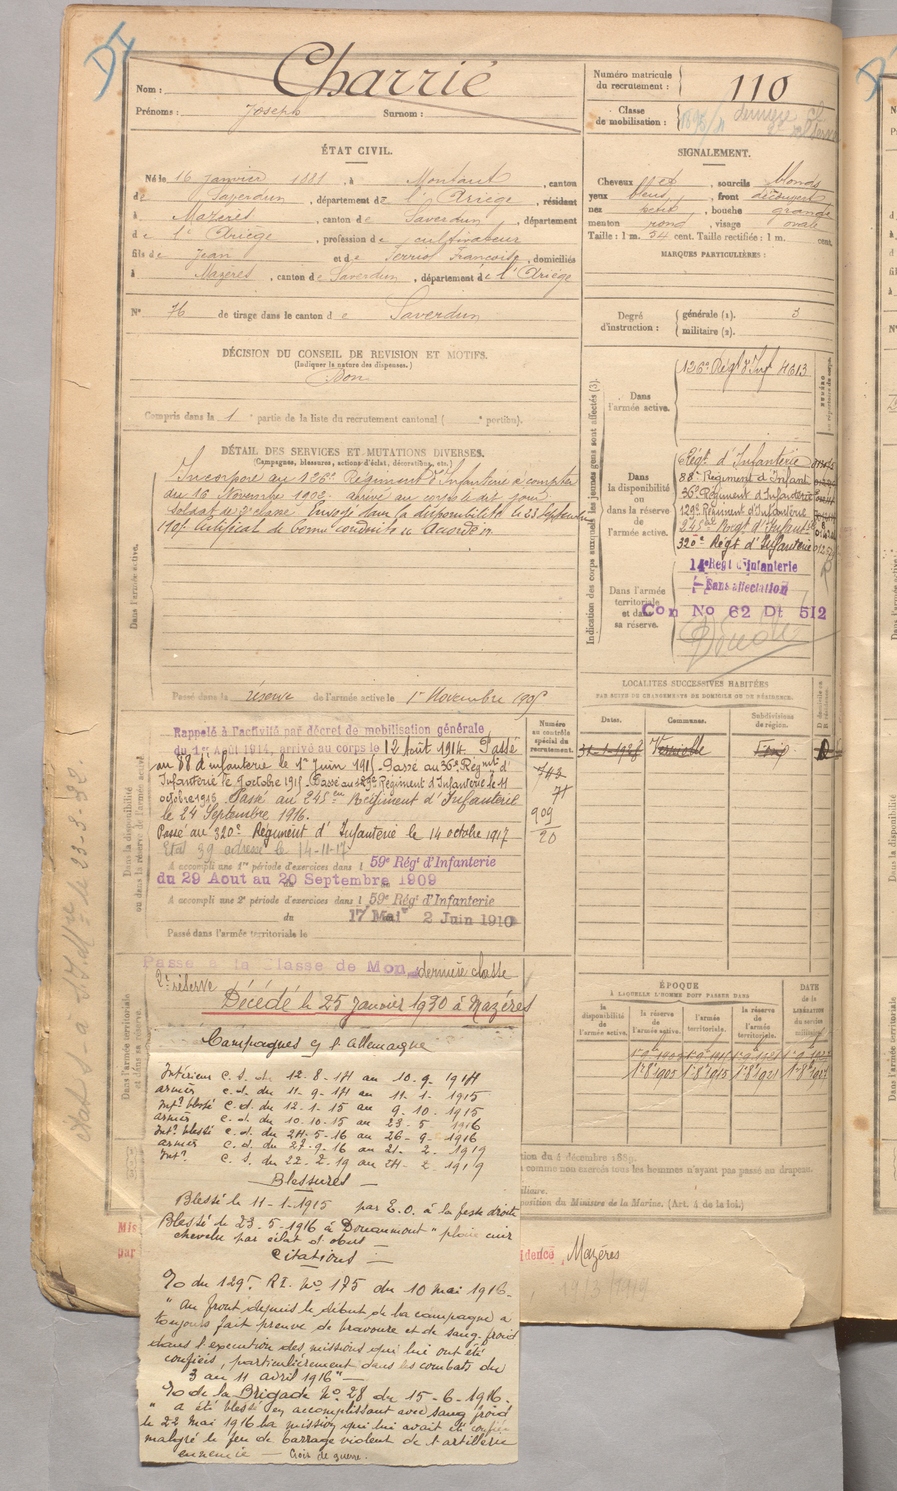 DI
Nom : Charrié
Prénoms : Joseph Surnom :
Numéro matricule du recrutement : 110
Classe de mobilisation : dernière cl.
ÉTAT CIVIL.
Né le 16 janvier 1881, à Montaut, canton
de Saverdun, département de l'Ariège, résidant
à Mazères, canton de Saverdun, département
de l'Ariège, profession de cultivateur
fils de Jean et de Terris Françoise, domiciliés
à Mazères, canton de Saverdun, département de l'Ariège
N° 76 de tirage dans le canton de Saverdun
SIGNALEMENT.
Cheveux et sourcils blonds
yeux bleus, front découvert
nez petit, bouche grande
menton rond, visage ovale
Taille : 1 m. 54 cent. Taille rectifiée : 1 m. cent.
MARQUES PARTICULIÈRES :
Degré d'instruction : générale (1). 3
militaire (2).
DÉCISION DU CONSEIL DE REVISION ET MOTIFS.
(Indiquer la nature des dispenses.)
Bon
Compris dans la 1e partie de la liste du recrutement cantonal ( e portion).
DÉTAIL DES SERVICES ET MUTATIONS DIVERSES.
(Campagnes, blessures, actions d'éclat, décorations, etc.)
Dans l'armée active.
Incorporé au 126e Régiment d'Infanterie à compter
du 16 Novembre 1902 arrivé au corps le dit jour
soldat de 2e classe. Envoyé dans la disponibilité le 23 Septembre
190 Certificat de bonne conduite Accordé
Passé dans la réserve de l'armée active le 1er Novembre 190
Indication des corps auxquels les jeunes gens sont affectés (3).
Dans l'armée active.
126e Régt d'Inf 4613
Dans la disponibilité ou dans la réserve de l'armée active.
Régt d'Infanterie
88e Régiment d'Infant
36e Régiment d'Infanterie
129e Régiment d'Infanterie
245e Régt d'Infant
320e Régt d'Infanterie
Dans l'armée territoriale et dans sa réserve.
14e Régt d'Infanterie
Sans affectation
Con No 62 Dt 512
LOCALITÉS SUCCESSIVES HABITÉES
PAR SUITE DE CHANGEMENTS DE DOMICILE OU DE RÉSIDENCE.
Dates. Communes. Subdivisions de région.
Dans la disponibilité ou dans la réserve de l'armée active.
Numéro au contrôle spécial du recrutement.
Rappelé à l'activité par décret de mobilisation générale
du 1er Août 1914, arrivé au corps le 12 Août 1914. Passé
au 88 d'infanterie le 1er Juin 1915. Passé au 36e Régmt d'
Infanterie le 9 octobre 1915. Passé au 129e Régiment d'Infanterie le 11
octobre 1915 Passé au 245eme Régiment d'Infanterie
le 24 Septembre 1916.
Passé au 320e Régiment d'Infanterie le 14 octobre 1917
909
20
A accompli une 1re période d'exercices dans l 59e Régt d'Infanterie
du 29 Aout au 20 Septembre 1909
A accompli une 2e période d'exercices dans l 59e Régt d'Infanterie
du 17 Mai 2 Juin 1910
Passé dans l'armée territoriale le
Dans l'armée territoriale et dans sa réserve.
Passé à la Classe de Mon dernière classe
2e réserve
Décédé le 25 Janvier 1930 à Mazères
ÉPOQUE
À LAQUELLE L'HOMME DOIT PASSER DANS
la disponibilité de l'armée active. la réserve de l'armée active. l'armée territoriale. la réserve de l'armée territoriale.
DATE de la LIBÉRATION du service militaire.
Campagnes c/ l'Allemagne
Intérieur C. S. d. 12-8-14 au 10-9-1914
armées c. d. du 11-9-14 au 11-1-1915
Intr blessé C. d. du 12-1-15 au 9-10-1915
armées c. d. du 10-10-15 au 23-5-1916
Intr blessé c. d. du 24-5-16 au 26-9-1916
armées c. d. du 27-9-16 au 21-2-1919
Intr C. S. du 22-2-19 au 24-2-1919
Blessures
Blessé le 11-1-1915 par E.O. à la fesse droite
Blessé le 23-5-1916 à Douaumont "plaie cuir
chevelu par éclat d'obus
Citations
O/ du 129e R.I. No 175 du 10 mai 1916
"Au front depuis le début de la campagne a
toujours fait preuve de bravoure et de sang-froid
dans l'exécution des missions qui lui ont été
confiées, particulièrement dans les combats du
3 au 11 avril 1916"
O/ de la Brigade No 28 du 15-6-1916.
"a été blessé en accomplissant avec sang froid
le 22 mai 1916 la mission qui lui avait été confiée
malgré le feu de barrage violent de l'artillerie
ennemie — Croix de guerre.
tion du 4 décembre 1889.
comme non exercés tous les hommes n'ayant pas passé au drapeau.
position du Ministre de la Marine. (Art. 4 de la loi.)
Mis
par
idence Mazères